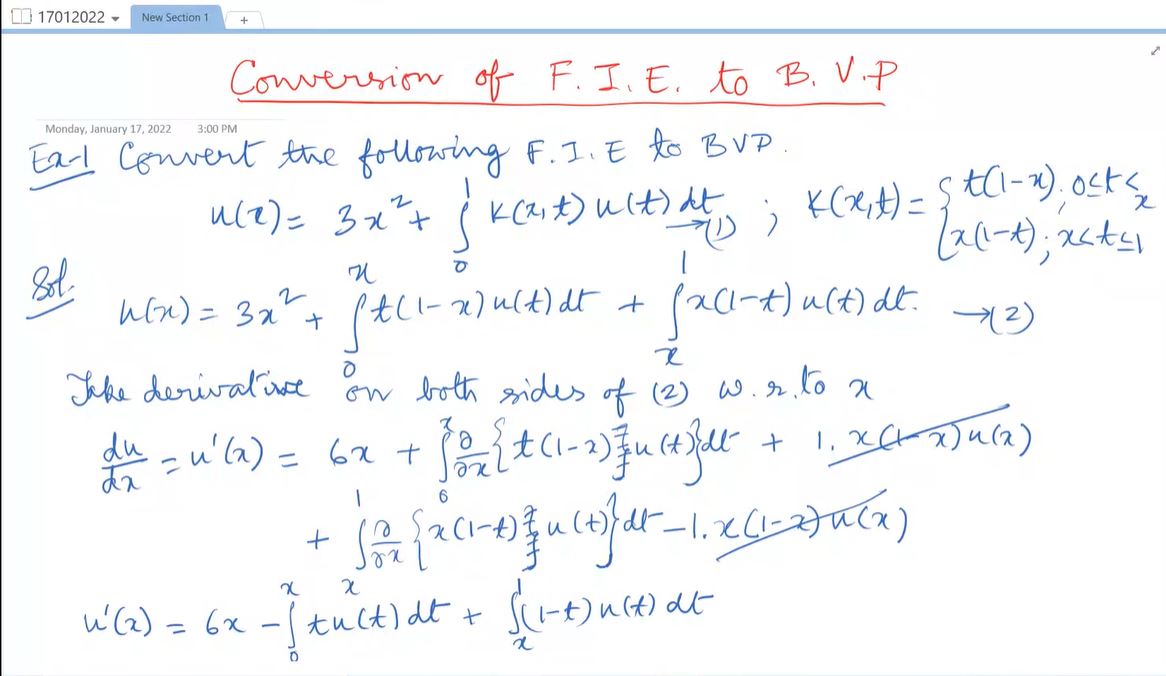 17012022 New Section 1 +
Conversion of F.I.E. to B.V.P
Monday, January 17, 2022 3:00 PM
Ex-1 Convert the following F.I.E to BVP.
u(x) = 3x² + ∫₀¹ K(x,t) u(t) dt →(1) ; K(x,t) = { t(1-x), 0≤t<x
x(1-t); x<t≤1
Sol.
u(x) = 3x² + ∫₀ˣ t(1-x) u(t) dt + ∫ₓ¹ x(1-t) u(t) dt. →(2)
Take derivative on both sides of (2) w.r.to x
du/dx = u'(x) = 6x + ∫₀ˣ ∂/∂x { t(1-x) u(t)} dt + 1. x(1-x) u(x)
+ ∫ₓ¹ ∂/∂x { x(1-t) u(t)} dt - 1. x(1-x) u(x)
u'(x) = 6x - ∫₀ˣ t u(t) dt + ∫ₓ¹ (1-t) u(t) dt